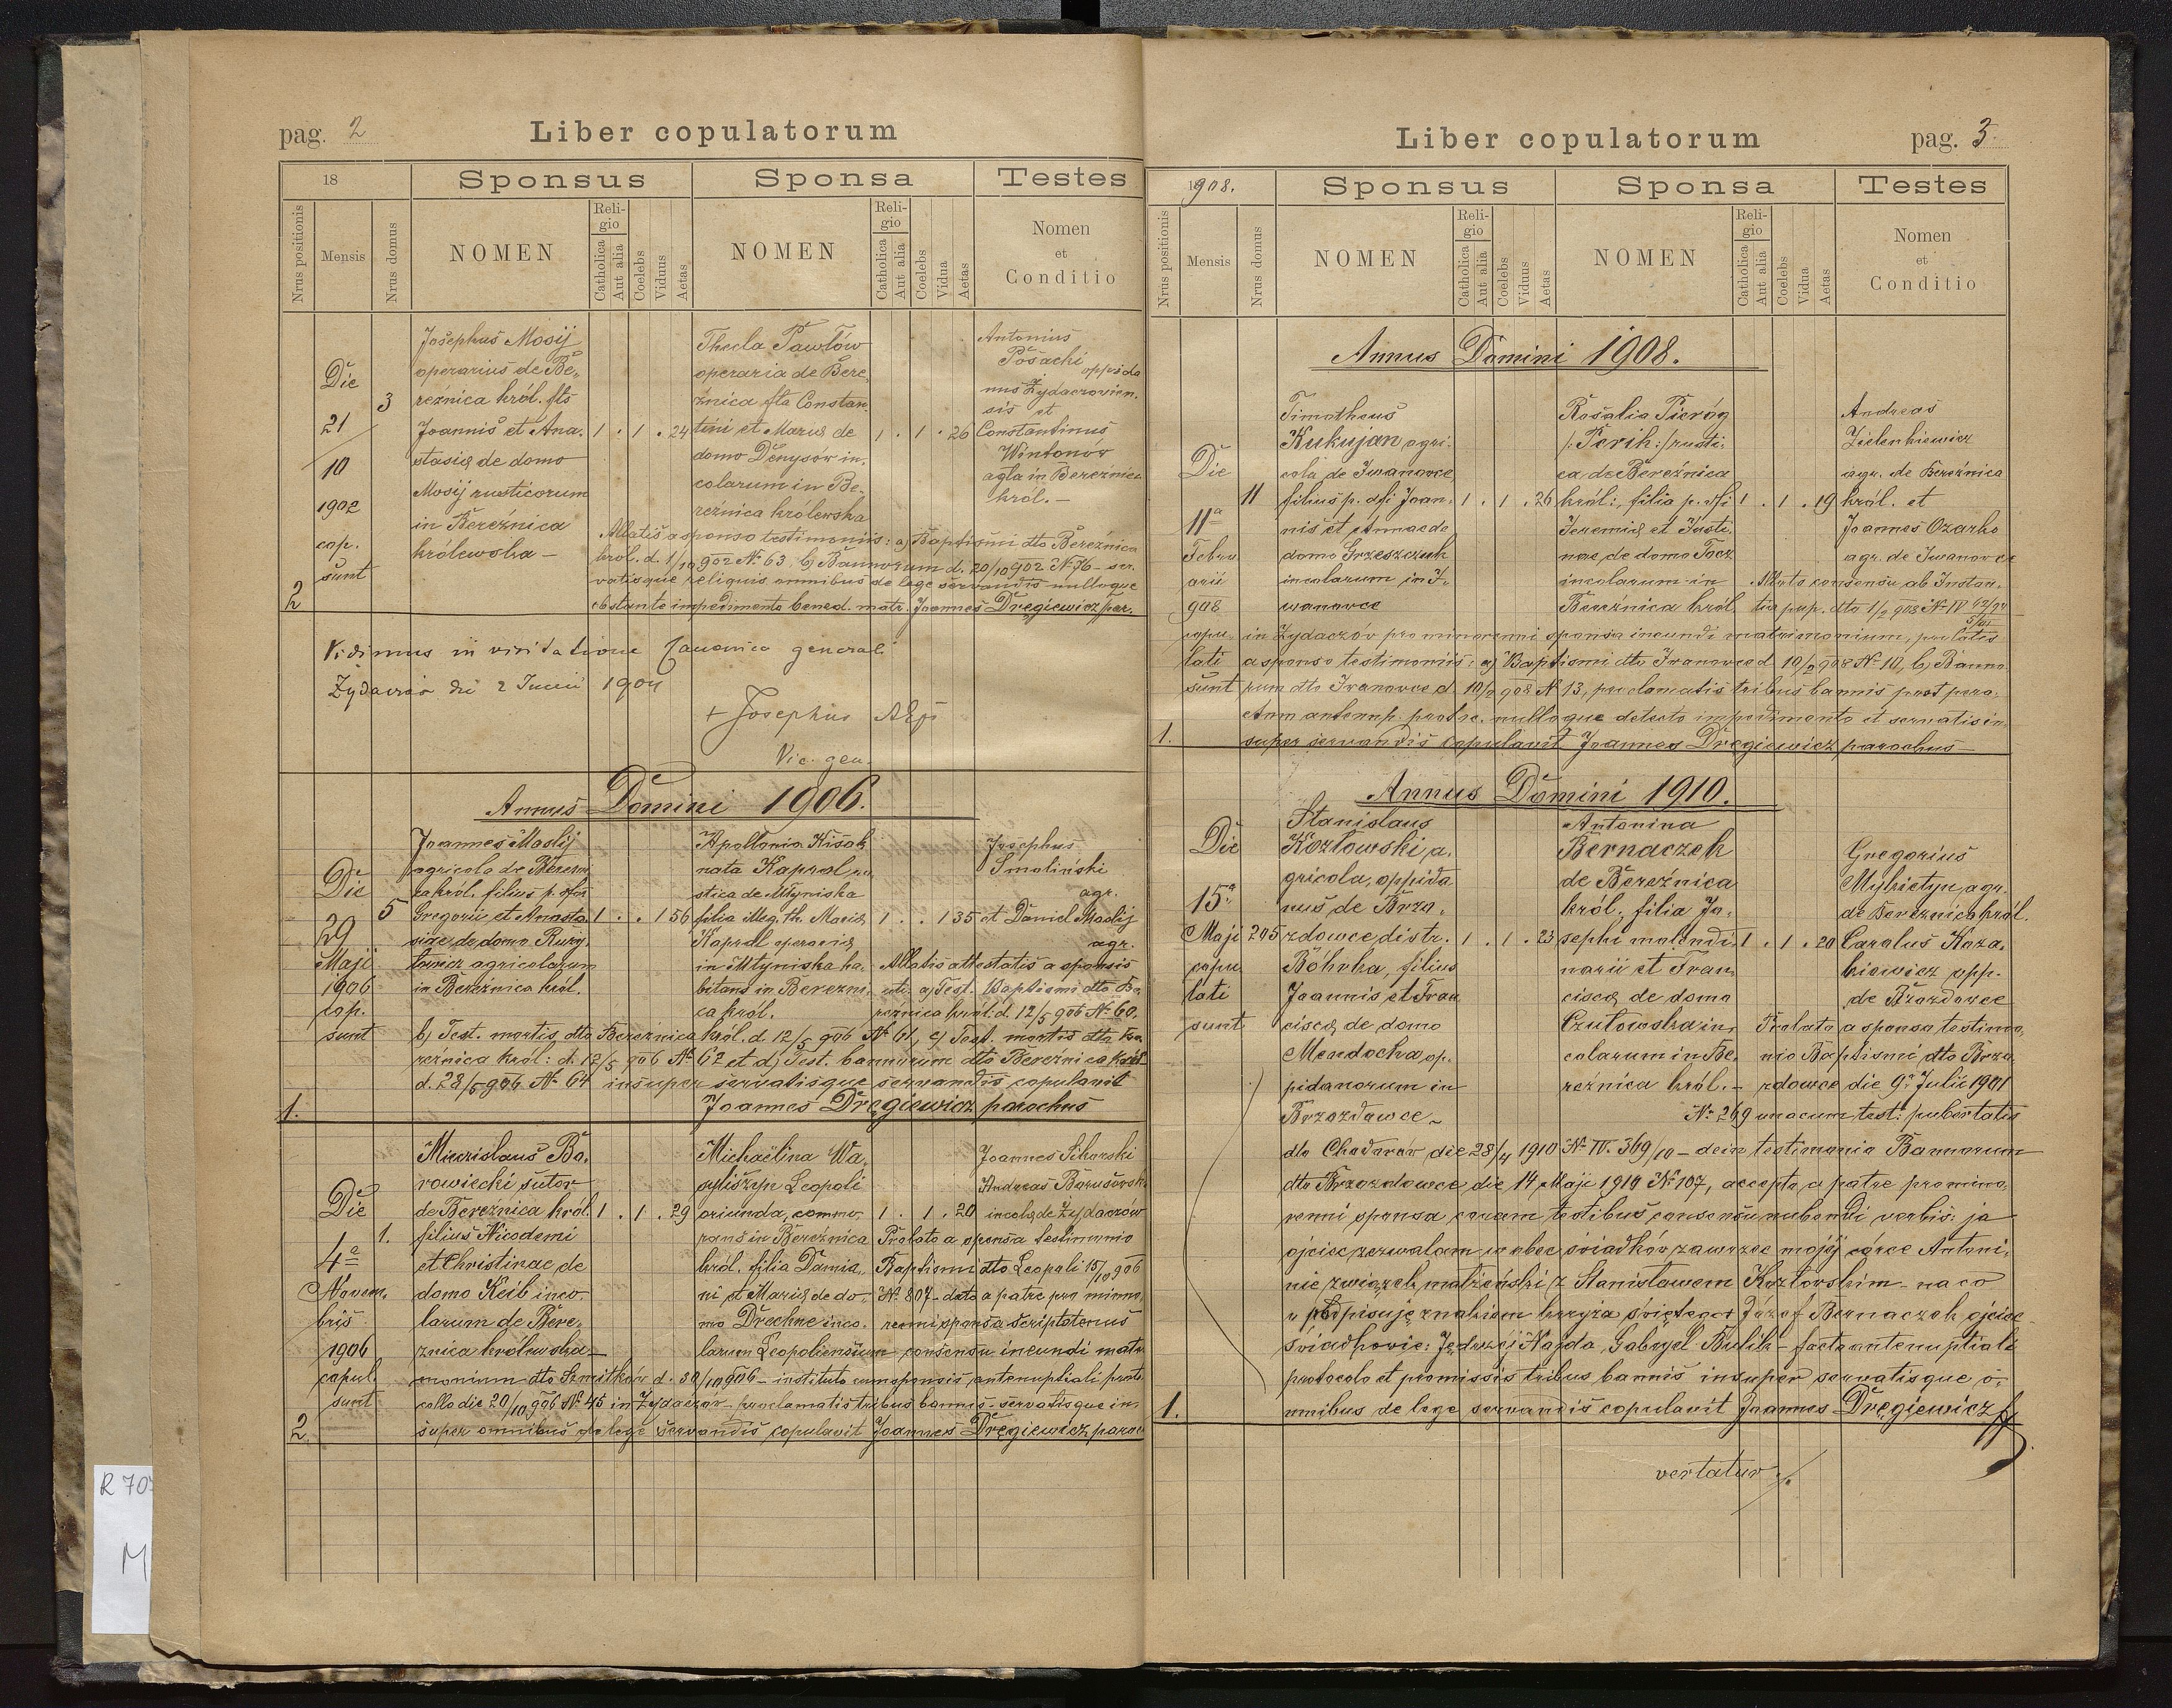 pag. 2
Liber copulatorum
18
Sponsus
Sponsa
Testes
Nrus positionis
Mensis
Nrus domus
NOMEN
Religio
Catholica
Aut alia
Coelebs
Viduus
Aetas
NOMEN
Religio
Catholica
Aut alia
Coelebs
Vidua
Aetas
Nomen
et
Conditio
Die
21
10
1902
cop.
sunt
2
3
Josephus Mosij
operarius de Be,,
reźnica król. fls
Joannis et Ana,
stasiæ de domo
Mosij rusticorum
in Bereźnica
królewska –
1 . 1 . 24
Thecla Pawłów
operaria de Bere,
źnica fta Constan,
tini et Mariæ de
domo Denysów in,
colarum in Be,
reźnica królewska
1 . 1 . 26
Antonius
Posacki oppida
nus Żydaczovien,
sis et
Constantinus
Wintonów
agla in Bereźnica
król. –
Allatis a sponso testimoniis: a) Baptismi dto Bereźnica
król. d. 1/10 902 N. 63. b) Bannorum d. 20/10 902 N. 76 – ser,
vatisque reliquis omnibus de lege servandis nulloque
obstante impedimento bened. matr. Joannes Dręgiewicz par.
Vidimus in visitatione Canonica generali
Żydaczów die 2 Junii 1904
+ Josephus AEp
Vic. gen.
Annus Domini 1906.
Die
29
Maji
1906
cop.
sunt
1.
5
Joannes Maslij
agricola de Berezni
ca król. filius p. dfti
Gregorii et Anasta
siae de domo Ruzy,
łowicz agricolarum
in Bereźnica król.
1 . . 1 56
Apollonia Kisak
nata Kapral ru
stica de Młyniska
filia illeg. th. Mariæ
Kapral operariæ
in Młyniska ha,
bitans in Berezni,
ca król.
1 . . 1 35
Josephus
Smoliński
agr.
et Daniel Maslij
agr.
Allatis attestatis a sponsis
uti a) Test. Baptismi dto Be
reźnica król. d. 12/5 906 N. 60.
b) Test. mortis dto Bereźnica król. d. 12/5 906 N. 61, c) Test. mortis dto Be
reźnica król: d. 12/5 906 N. 62 et d) Test. bannorum dto Bereźnica król.
d. 28/5 906 N. 64 insuper servatisque servandis copulavit
Joannes Dręgiewicz parochus
Die
4a
Novem,
bris
1906
copul.
sunt
2.
1.
Miecislaus Bo,
rowiecki sutor
de Bereźnica król.
filius Nicodemi
et Christinae de
domo Keib inco,
larum de Bere,
znica królewska –
1 . 1 . 29
Michaëlina Wa,
syliszyn Leopoli
oriunda, commo,
rans in Bereźnica
król. filia Damia,
ni et Mariæ de do,
mo Drechne inco,
larum Leopoliensium
1 . 1 . 20
Joannes Sikorski
Andreas Borusowski
incolæ de Żydaczów
Prolato a sponsa testimonio
Baptismi dto Leopoli 15/10 906
N. 807 – dato a patre pro mino,
renni sponsa scriptotenus
consensu ineundi matri
monium dto d. 30/10 906 – instituto cum sponsis antenuptiali proto
collo die 20/10 906 N. 45 in Żydaczów – proclamatis tribus bannis – servatisque in
super omnibus de lege servandis copulavit Joannes Dręgiewicz paroc
Liber copulatorum
pag. 3.
1908.
Sponsus
Sponsa
Testes
Nrus positionis
Mensis
Nrus domus
NOMEN
Religio
Catholica
Aut alia
Coelebs
Viduus
Aetas
NOMEN
Religio
Catholica
Aut alia
Coelebs
Vidua
Aetas
Nomen
et
Conditio
Annus Domini 1908.
Die
11a
Febru
arii
908
copu
lati
sunt
1.
11
Timotheus
Kukujan agri,
cola de Iwanowce
filius p. dfti Joan,
nis et Annae de
domo Grzeszczuk
incolarum in I,
wanowce
1 . 1 . 26
Rosalia Pieróg
/: Perih :/ rusti,
ca de Bereźnica
król:, filia p. dfti
Jeremiæ et Justi,
nae de domo Tocz
incolarum in
Bereźnica król.
1 . 1 . 19
Andreas
Zielenkiewicz
agr. de Bereźnica
król. et
Joannes Ozarko
agr. de Iwanowce
Dato consensu ab Instan,
tia pup. dto 1/2 908 N. IV 42/94
5/08
in Żydaczów pro minorenni sponsa ineundi matrimonium, prolatis
a sponso testimoniis: a) Baptismi dto Iwanowce d. 10/2 908 N. 10, b) Banno
rum dto Iwanowce d. 10/2 908 N. 13, proclamatis tribus bannis post pera,
ctum antenup. protoc. nulloque detecto impedimento et servatis in,
super servandis copulavit Joannes Dręgiewicz parochus –
Annus Domini 1910.
Die
15a
Maji
copu
lati
sunt
1.
205
Stanislaus
Kozłowski a,
gricola, oppida
nus de Brzo,
zdowce distr.
Bóbrka, filius
Joannis et Fran
ciscæ de domo
Mendocha op,
pidanorum in
Brzozdowce ~
1 . 1 . 23
Antonina
Bernaczek
de Bereźnica
król., filia Jo,
sephi molendi,
narii et Fran,
ciscæ de domo
Czułowska in,
colarum in Be,
reźnica król. –
1 . 1 . 20
Gregorius
Mykietyn agr.
de Bereznica król.
Carolus Koza,
kiewicz opp.
de Brzozdowce
Prolato a sponsa testimo,
nio Baptismi dto Brzo,
zdowce die 9a Julii 1901
N. 269 unacum test: pubertatis
dto Chodorów die 28/4 1910 N. IV. 369/10 – dein testimonio Bannorum
dto Brzozdowce die 14 Maji 1910 N. 107, accepto a patre pro mino,
renni sponsa coram testibus consensu nubendi verbis: ja
ojciec zezwalam wobec świadków zawrzec mojéj córce Antoni,
nie związek małżeński z Stanisławem Kozłowskim – na co
podpisuję znakiem krzyża świętego + Józef Bernaczek ojciec
Świadkowie: Jędrzej Najda, Gabryel Bulik – facto antenuptiali
protocolo et promissis tribus bannis insuper servatisque o,
mnibus de lege servandis copulavit Joannes Dręgiewicz
vertatur ./.
R 70
M